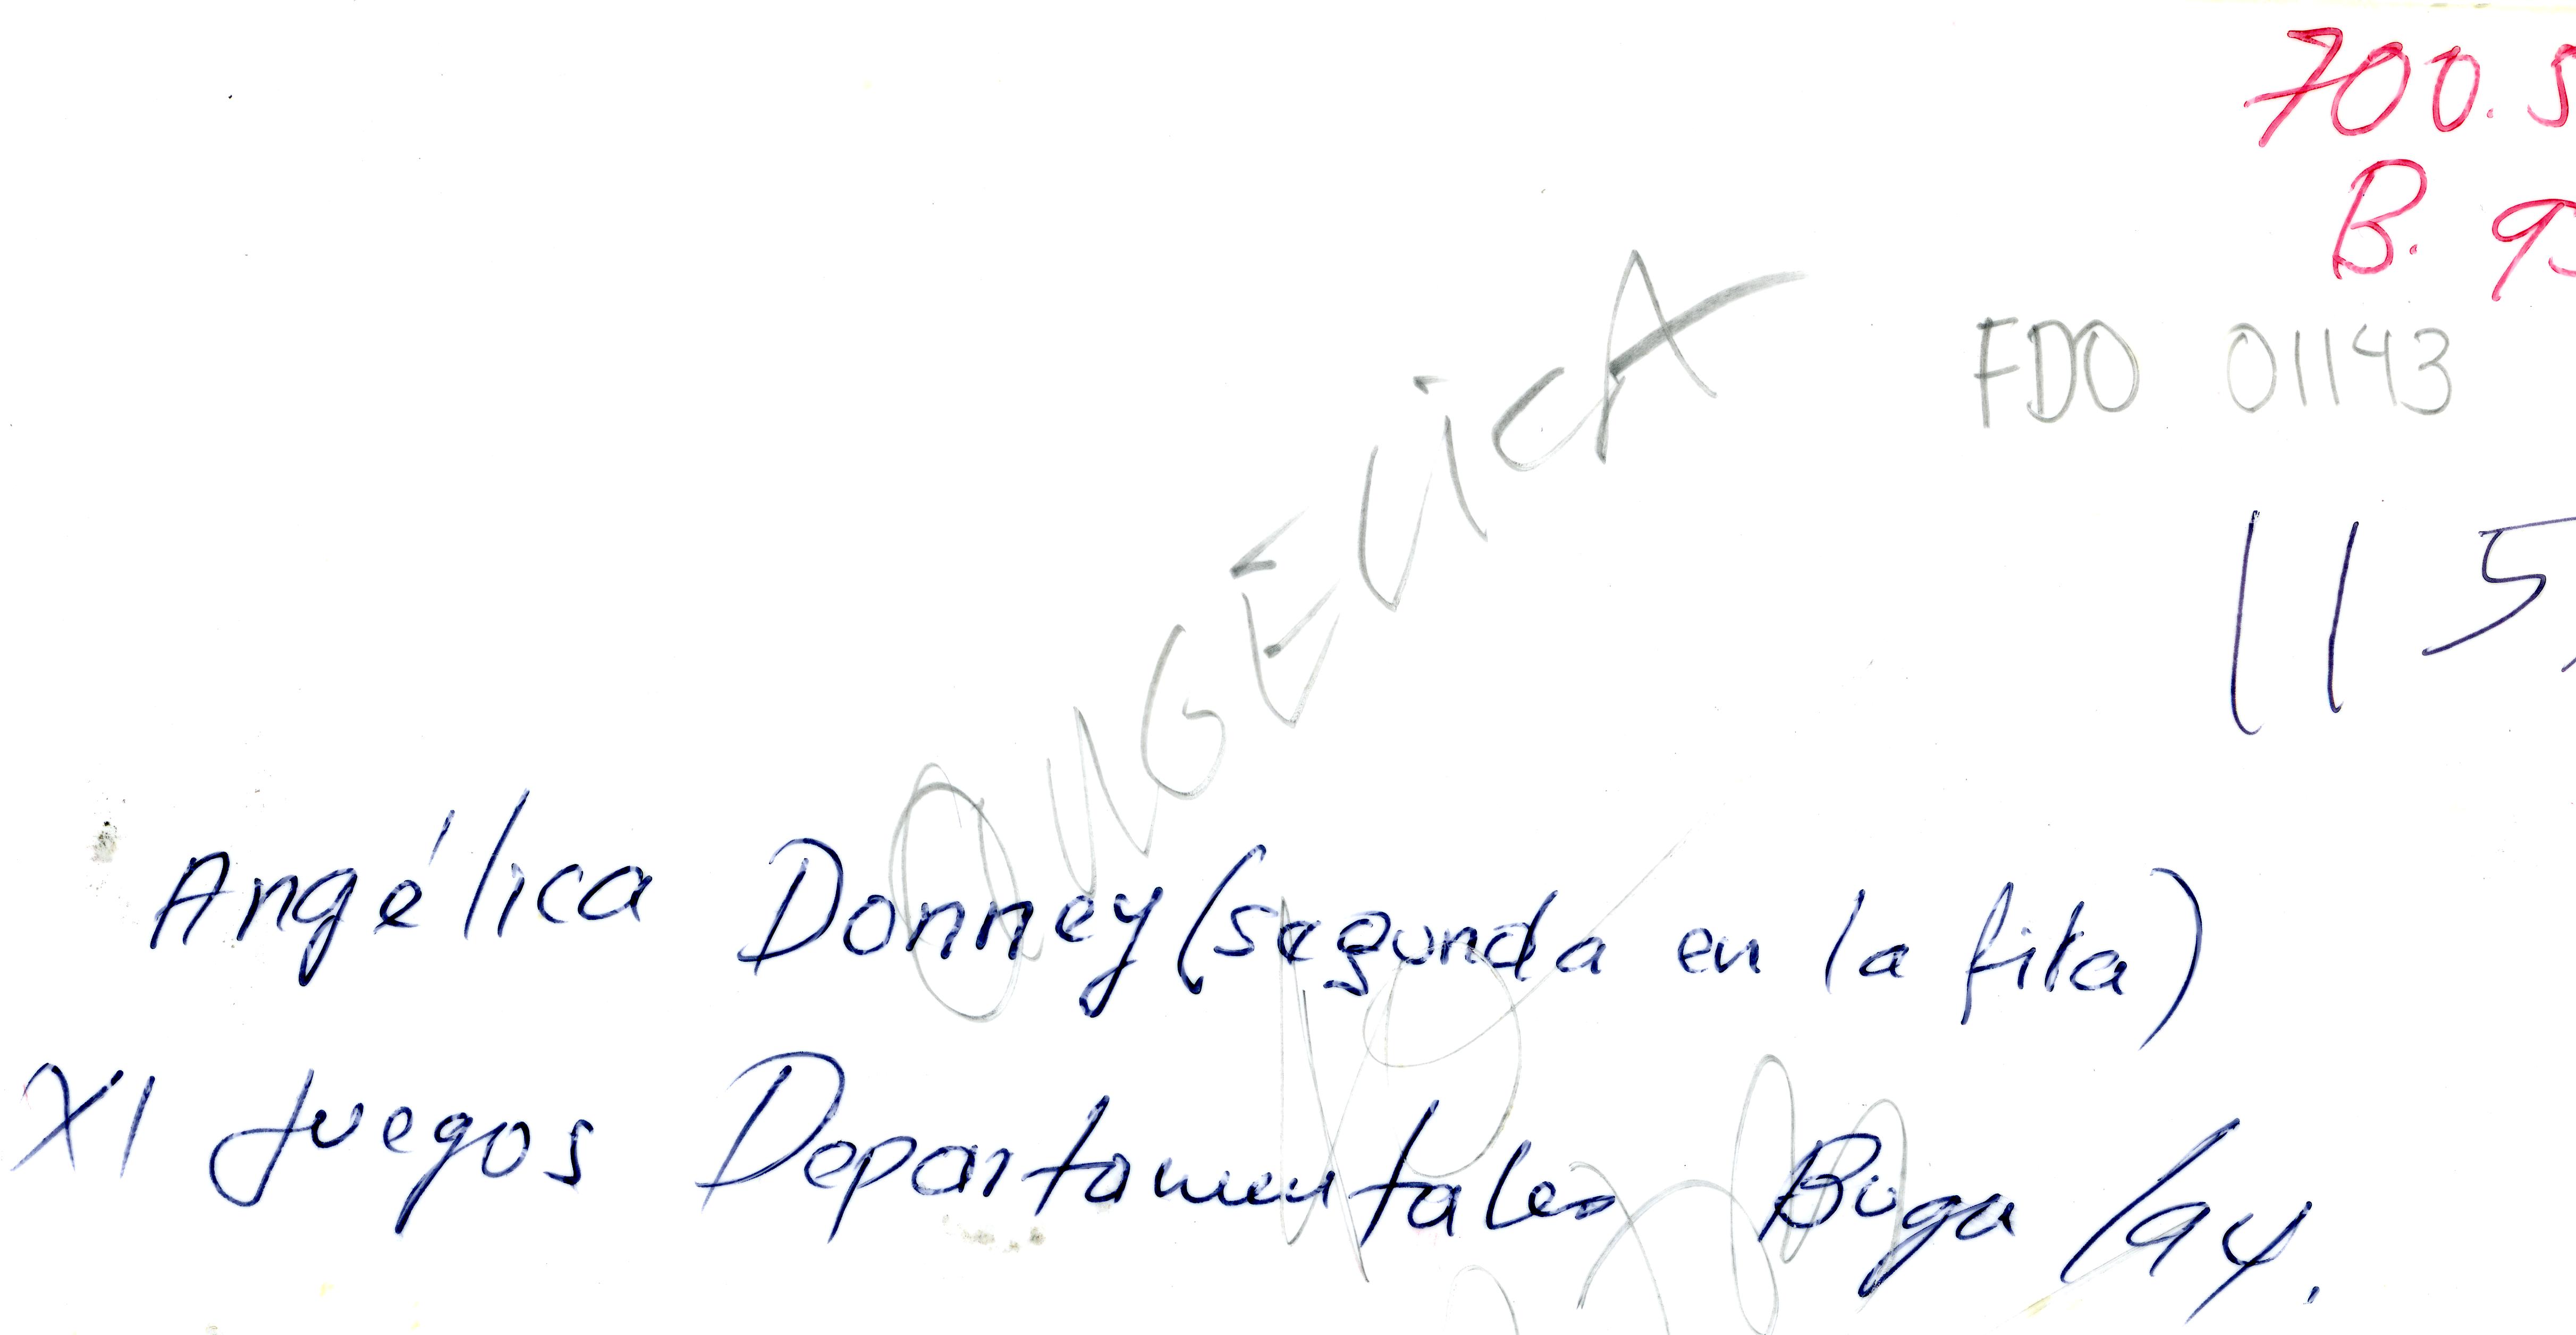 700.5
B. 9
FDO 01143
115
ANGELICA
Angélica Donney (segunda en la fila)
XI Juegos Departamentales Buga /94.